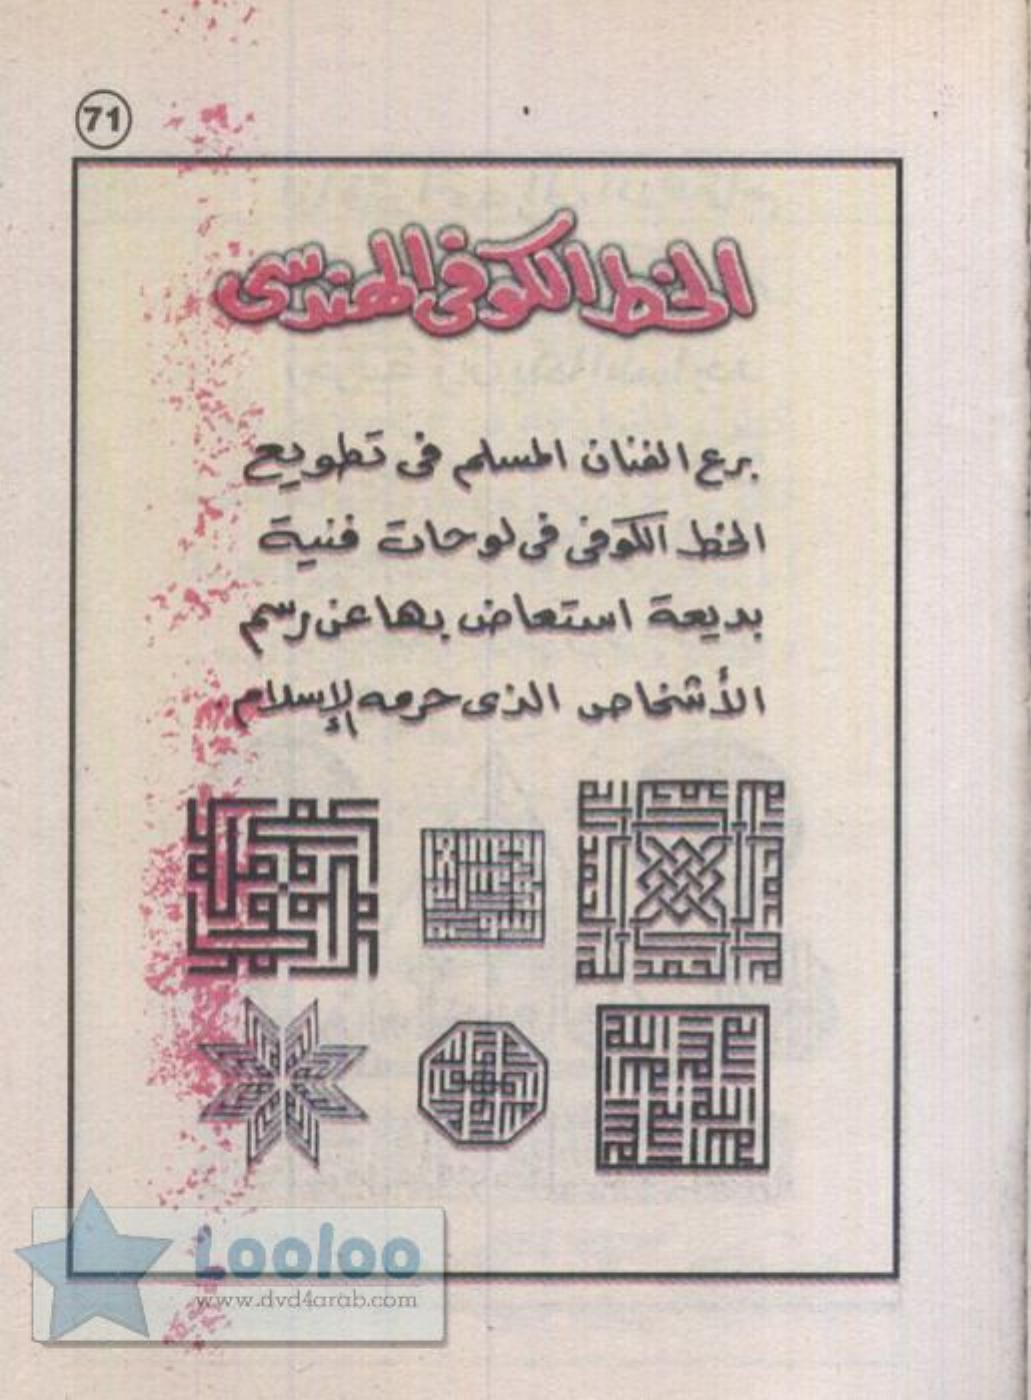 71
الخط الكوفى الهندسى
برع الفنان المسلم فى تطويع
الخط الكوفى فى لوحات فنية
بديعة استعاض بها عن رسم
الأشخاص الذى حرمه الإسلام
Looloo
www.dvd4arab.com